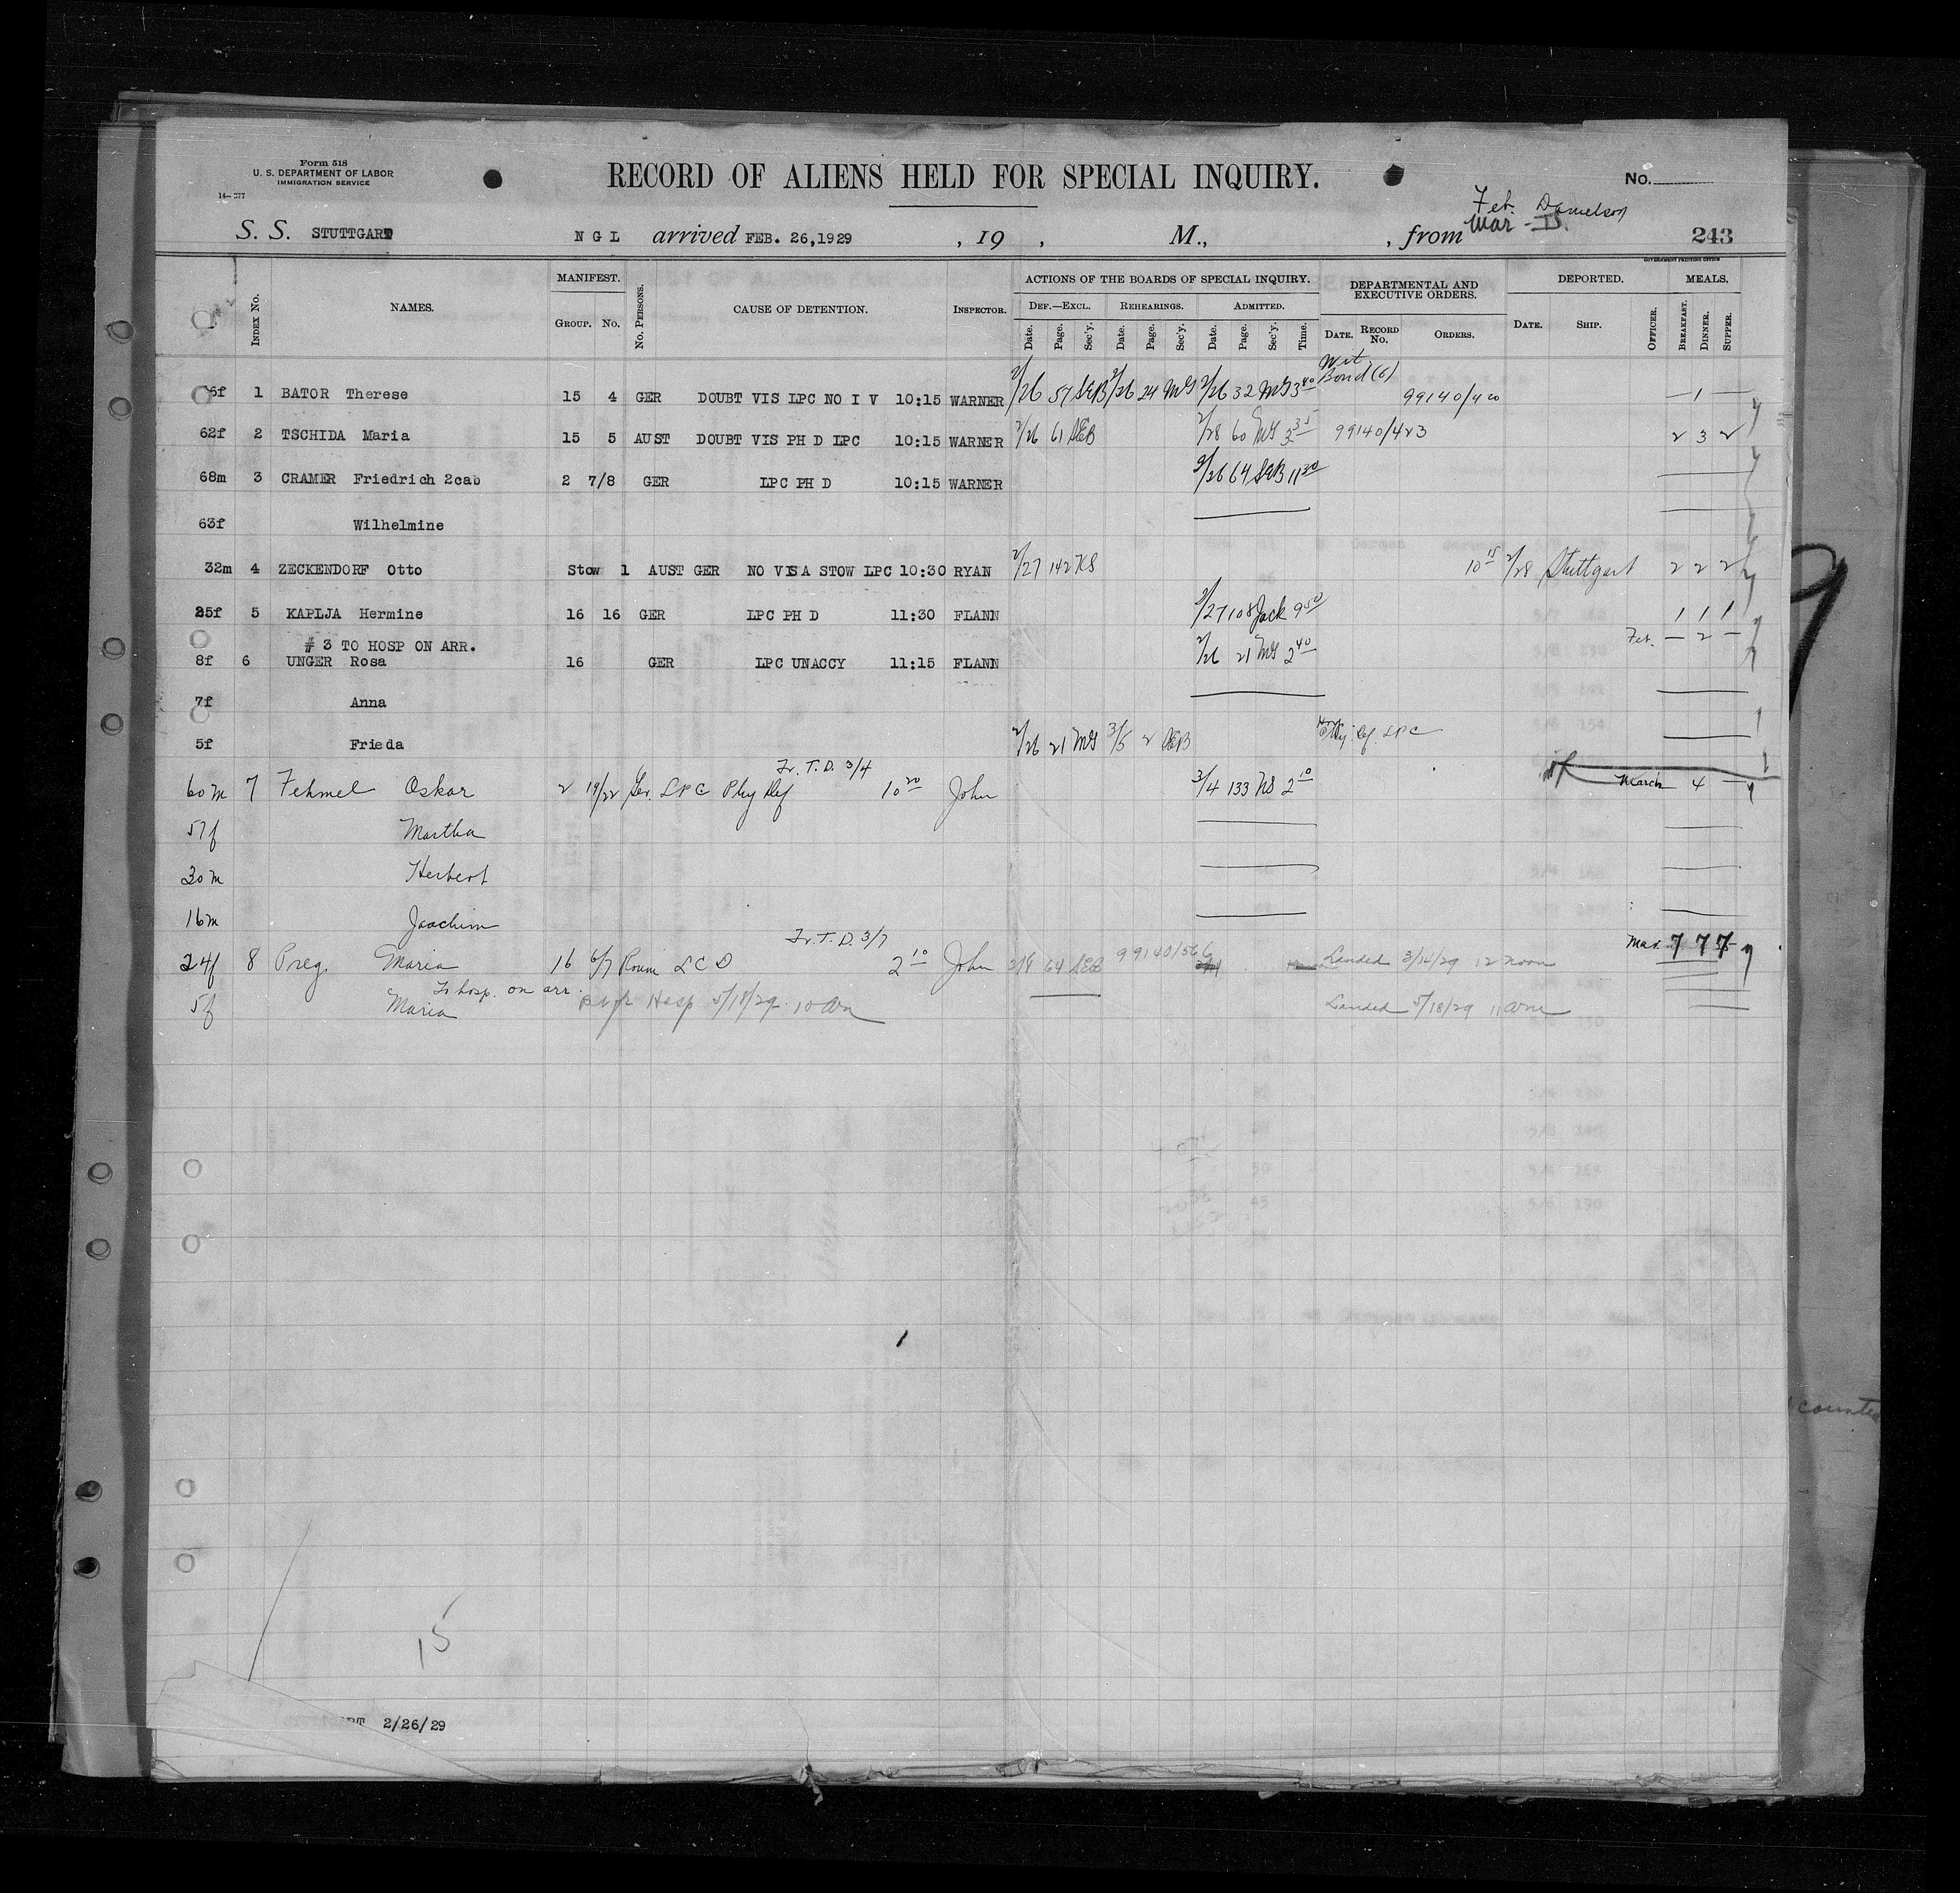 Form 518
U. S. DEPARTMENT OF LABOR
IMMIGRATION SERVICE
14—277
RECORD OF ALIENS HELD FOR SPECIAL INQUIRY.
No.
Feb. Danielson
Mar - D.
S. S. STUTTGART N G L arrived FEB. 26,1929 , 19 , M., , from 243
GOVERNMENT PRINTING OFFICE
INDEX No. NAMES. MANIFEST. GROUP. No. No. PERSONS. CAUSE OF DETENTION. INSPECTOR. ACTIONS OF THE BOARDS OF SPECIAL INQUIRY. DEPARTMENTAL AND EXECUTIVE ORDERS. DEPORTED. MEALS.
DEF.—EXCL. REHEARINGS. ADMITTED.
Date. Page. Sec'y. Date. Page. Sec'y. Date. Page. Sec'y. Time. DATE. RECORD No. ORDERS. DATE. SHIP. OFFICER. BREAKFAST. DINNER. SUPPER.
6f 1 BATOR Therese 15 4 GER DOUBT VIS LPC NO I V 10:15 WARNER 2/26 57 SEB 2/26 24 MG 2/26 32 MG 3 40 Bond (6) 99140/420 — 1 —
62f 2 TSCHIDA Maria 15 5 AUST DOUBT VIS PH D LPC 10:15 WARNER 2/26 61 SEB 2/28 60 MG 3 35 99140/423 2 3 2
68m 3 CRAMER Friedrich 2cab 2 7/8 GER LPC PH D 10:15 WARNER 2/26 64 SEB 11 30
63f Wilhelmine
32m 4 ZECKENDORF Otto Stow 1 AUST GER NO VISA STOW LPC 10:30 RYAN 2/27 142 KS 10 15 2/28 Stuttgart 2 2 2
25f 5 KAPLJA Hermine 16 16 GER LPC PH D 11:30 FLANN 2/27 108 Jack 9 50 1 1 1
# 3 TO HOSP ON ARR.
8f 6 UNGER Rosa 16 GER LPC UNACCY 11:15 FLANN 2/26 21 MG 2 40 Feb. — 2 —
7f Anna
5f Frieda 2/26 21 MG 3/5 2 SEB Phy. Def. LPC
Tr. T. D. 3/4
60m 7 Fehmel Oskar 2 19/22 Ger. LPC Phy Def 10 20 John 3/4 133 NS 2 10 March 4 —
57f Martha
30m Herbert
16m Joachim
Tr. T. D. 3/7
24f 8 Preg. Maria 16 6/7 Roum LCD 2 10 John 64 SEB 99140/566 Landed 3/14/29 12 noon Mar. 7 7 7
To hosp. on arr.
5f Maria Hosp 5/18/29 10 am Landed 5/18/29 11 am
15
RT 2/26/29
counted